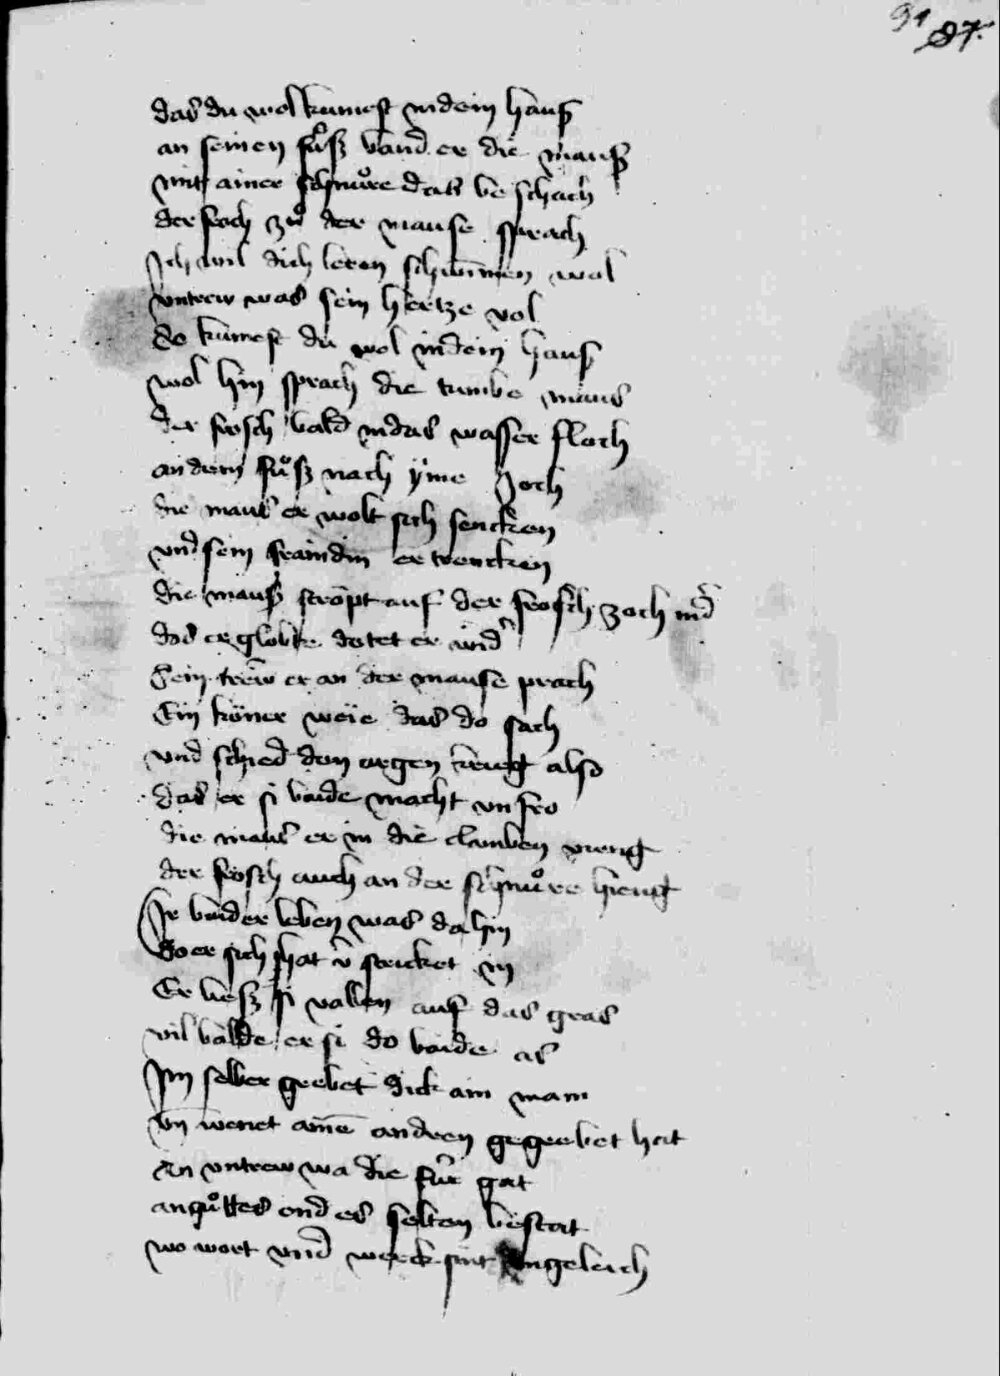 91 87.
das du wol kumest indein hauß
an seinen fuͦß band er die mauß
mit ainer schnuͦre dats be schach
der frosch zuͦ der mause sprach
Ich wil dich leren schwimmen wol
vntrew was sein hertze vol
So kumest du wol indein hauß
wol hin sprach die tumbe maus
der frosch bald indas wasser floch
an dem fuͦß nach yme zoch
die maus er wolt sich sencken
vnd sein fraindin er trencken
die mauß ströpt auf der frosch zoch nid̄
das er globte do tet er wid̄
Sein trew er an der mause prach
Ein köner weie das do sach
vnd schied den argen krieg also
das er si baide macht vn fro
die maus er in die clauben vieng
der frosch auch an der schnuͦre hieng
Ir baider leben was da hin
So er sich hat v̄ stricket in
Er ließ si vallen auf das gras
vil balde er si do baide as
Im selber grebet dick ain man
vn̄ wenet ame andren gegrebet hat
An vntrew wa die für gat
anguͦttes end es selten bestat
wo wort vnd werck sint vngeleich